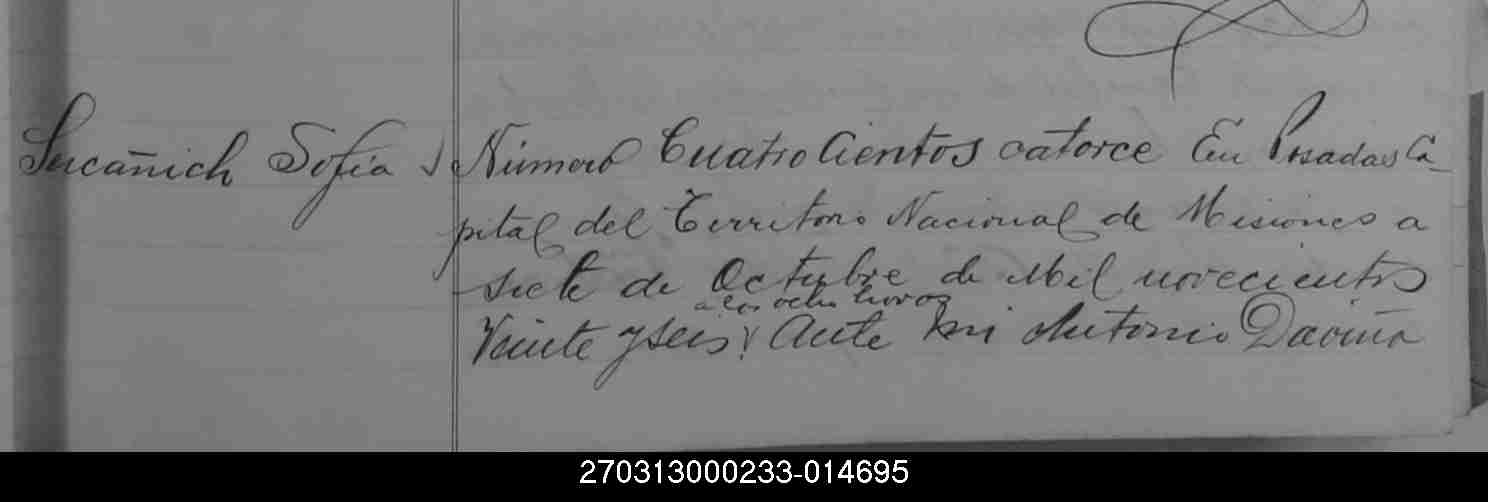 Sucañich Sofía
Número Cuatro Cientos catorce En Posadas Ca-
pital del Territorio Nacional de Misiones a
siete de Octubre de Mil novecientos
a las ocho horas
Veinte y seis Ante mi Antonio Daviña
270313000233-014695